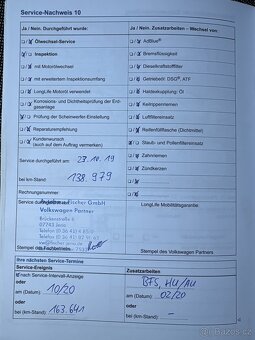 Service-Nachweis 10
Ja / Nein. Durchgeführt wurde:
Ölwechsel-Service
Inspektion
mit Motorölwechsel
mit erweitertem Inspektionsumfang
LongLife-Motoröl verwendet
Korrosions- und Dichtheitsprüfung der Erdgasanlage
Prüfung der Scheinwerfer-Einstellung
Reparaturempfehlung
Kundenwunsch
(auch auf dem Auftrag vermerken)
Service durchgeführt am: 23.10.19
bei km-Stand: 138.979
Rechnungsnummer:
Service durch
Fischer GmbH
Volkswagen Partner
07743 Jena
Stempel des Fachbetriebs
Ja / Nein. Zusatzarbeiten – Wechsel von:
AdBlue®
Bremsflüssigkeit
Dieselkraftstofffilter
Getriebeöl: DSG®, ATF
Haldexkupplung: Öl
Keilrippenriemen
Luftfiltereinsatz
Reifenfüllflasche (Dichtmittel)
Staub- und Pollenfiltereinsatz
Zahnriemen
Zündkerzen
LongLife Mobilitätsgarantie
Stempel des Volkswagen Service
Ihre nächsten Service-Termine
Service-Ereignis
nach Service-Intervall-Anzeige
oder
am (Datum): 10/20
oder
bei (km-Stand): 163.641
Zusatzarbeiten
BFS, HU/AU
am (Datum): 02/20
oder
bei (km-Stand): –